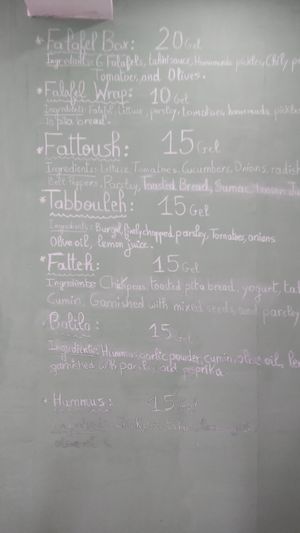 * Falafel Box: 20 Gel
Ingredients: 6 Falafels, tahini sauce, Homemade pickles, Chily
Tomatoes, and Olives.
* Falafel Wrap: 10 Gel
Ingredients: Falafel, lettuce, parsley, tomatoes, homemade pickles
in pita bread.
* Fattoush: 15 Gel
Ingredients: Lettuce, Tomatoes, Cucumbers, Onions, radish
Bell Peppers, Parsley, Toasted Bread, Sumac, lemon Ju
* Tabbouleh: 15 Gel
Ingredients: Burgul, finely chopped parsley, Tomatoes, onions
Olive oil, lemon juice.
* Fatteh: 15 Gel
Ingredients: Chickpeas, toasted pita bread, yogurt, ta
Cumin, Garnished with mixed seeds, and parsley
* 15 Gel
Ingredients: garlic powder, cumin, olive oil, le
garnished with and paprika.
* Hummus: 15 Gel